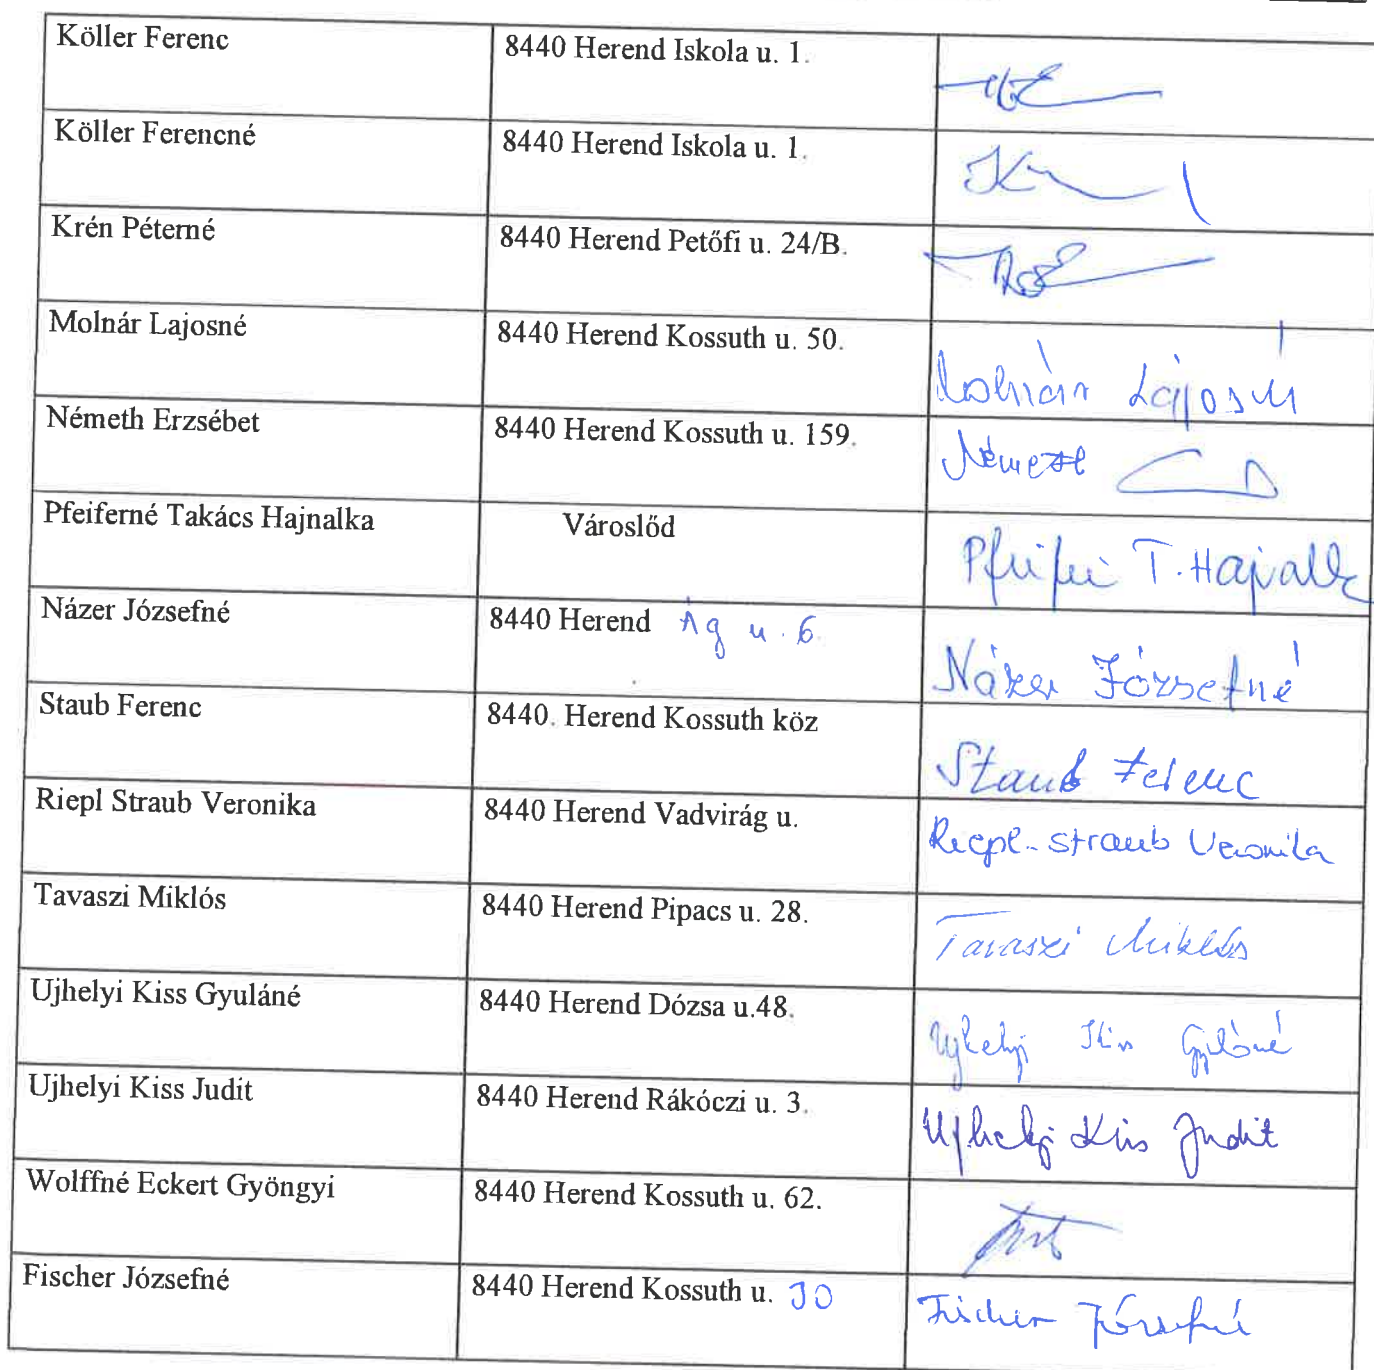 Köller Ferenc 8440 Herend Iskola u. 1.
Köller Ferencné 8440 Herend Iskola u. 1.
Krén Péterné 8440 Herend Petőfi u. 24/B.
Molnár Lajosné 8440 Herend Kossuth u. 50. Molnár Lajosné
Németh Erzsébet 8440 Herend Kossuth u. 159. Németh
Pfeiferné Takács Hajnalka Városlőd Pfeiferné T. Hajnalka
Názer Józsefné 8440 Herend Ág u. 6. Názer Józsefné
Staub Ferenc 8440. Herend Kossuth köz Staub Ferenc
Riepl Straub Veronika 8440 Herend Vadvirág u. Riepl-Straub Veronika
Tavaszi Miklós 8440 Herend Pipacs u. 28. Tavaszi Miklós
Ujhelyi Kiss Gyuláné 8440 Herend Dózsa u.48. Ujhelyi Kiss Gyuláné
Ujhelyi Kiss Judit 8440 Herend Rákóczi u. 3. Ujhelyi Kiss Judit
Wolffné Eckert Gyöngyi 8440 Herend Kossuth u. 62.
Fischer Józsefné 8440 Herend Kossuth u. 30 Fischer Józsefné